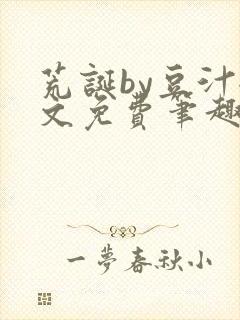 荒誕by豆汁
文免費筆趣
一夢春秋小